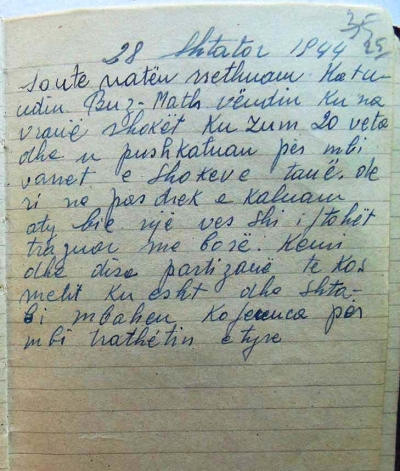 28 Shtator 1944
sonte natën rrethuam Katu-
ndin Buz-Math vëndin ku na
vranë shokët ku zum 20 veta
dhe u pushkatuan për mbi
varret e shokeve tanë.
ri na pas drek e kaluam
aty bie një ves shi i ftohët
trazuar me borë. Kemi
dhe disa partizanë te Kos
metit ku esht dhe shta-
bi mbahen Koferenca për
mbi trathëtin e tyre